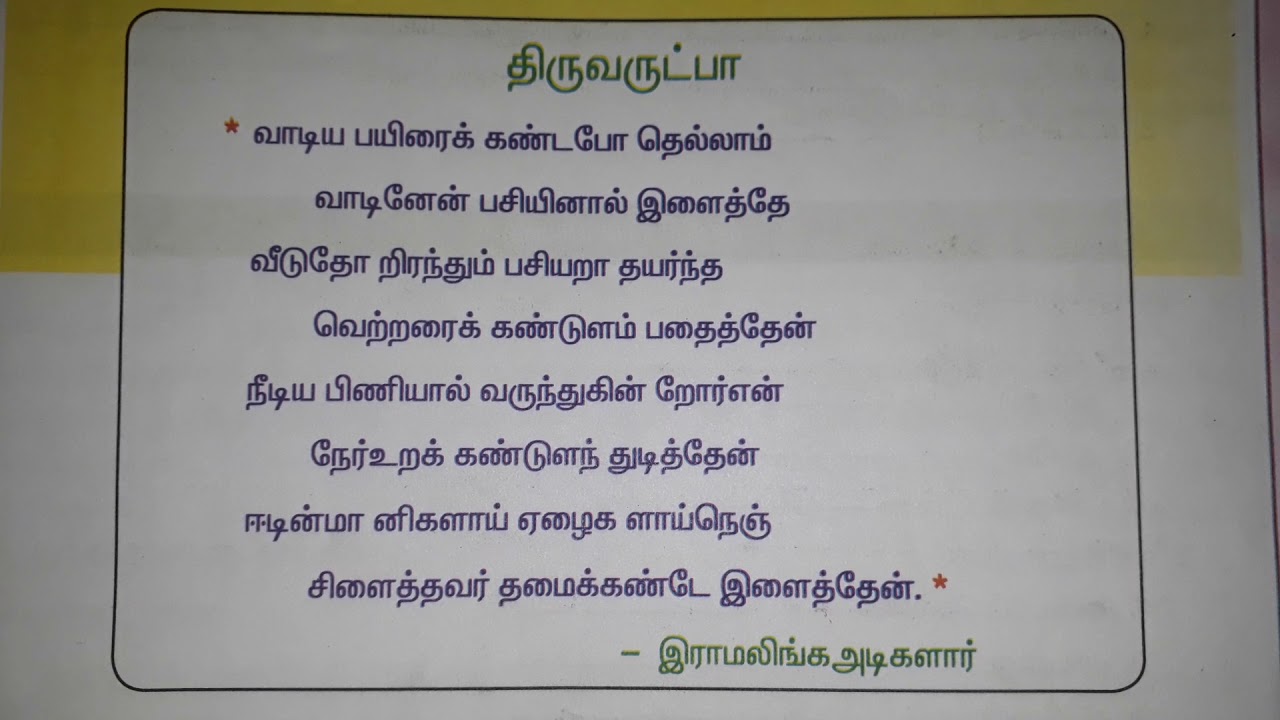 திருவருட்பா
* வாடிய பயிரைக் கண்டபோ தெல்லாம்
வாடினேன் பசியினால் இளைத்தே
வீடுதோ றிரந்தும் பசியறா தயர்ந்த
வெற்றரைக் கண்டுளம் பதைத்தேன்
நீடிய பிணியால் வருந்துகின் றோர்என்
நேர்உறக் கண்டுளந் துடித்தேன்
ஈடின்மா னிகளாய் ஏழைக ளாய்நெஞ்
சிளைத்தவர் தமைக்கண்டே இளைத்தேன். *
– இராமலிங்கஅடிகளார்